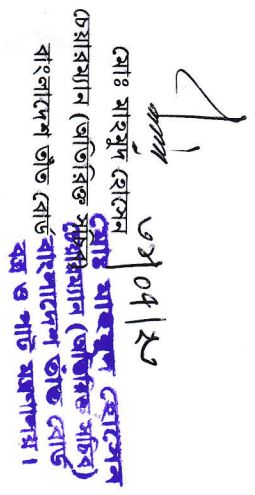 মোঃ মাহমুদ হোসেন
চেয়ারম্যান (অতিরিক্ত সচিব)
বাংলাদেশ তাঁত বোর্ড
মোঃ মাহমুদ হোসেন
চেয়ারম্যান (অতিরিক্ত সচিব)
বাংলাদেশ তাঁত বোর্ড
বস্ত্র ও পাট মন্ত্রণালয়।